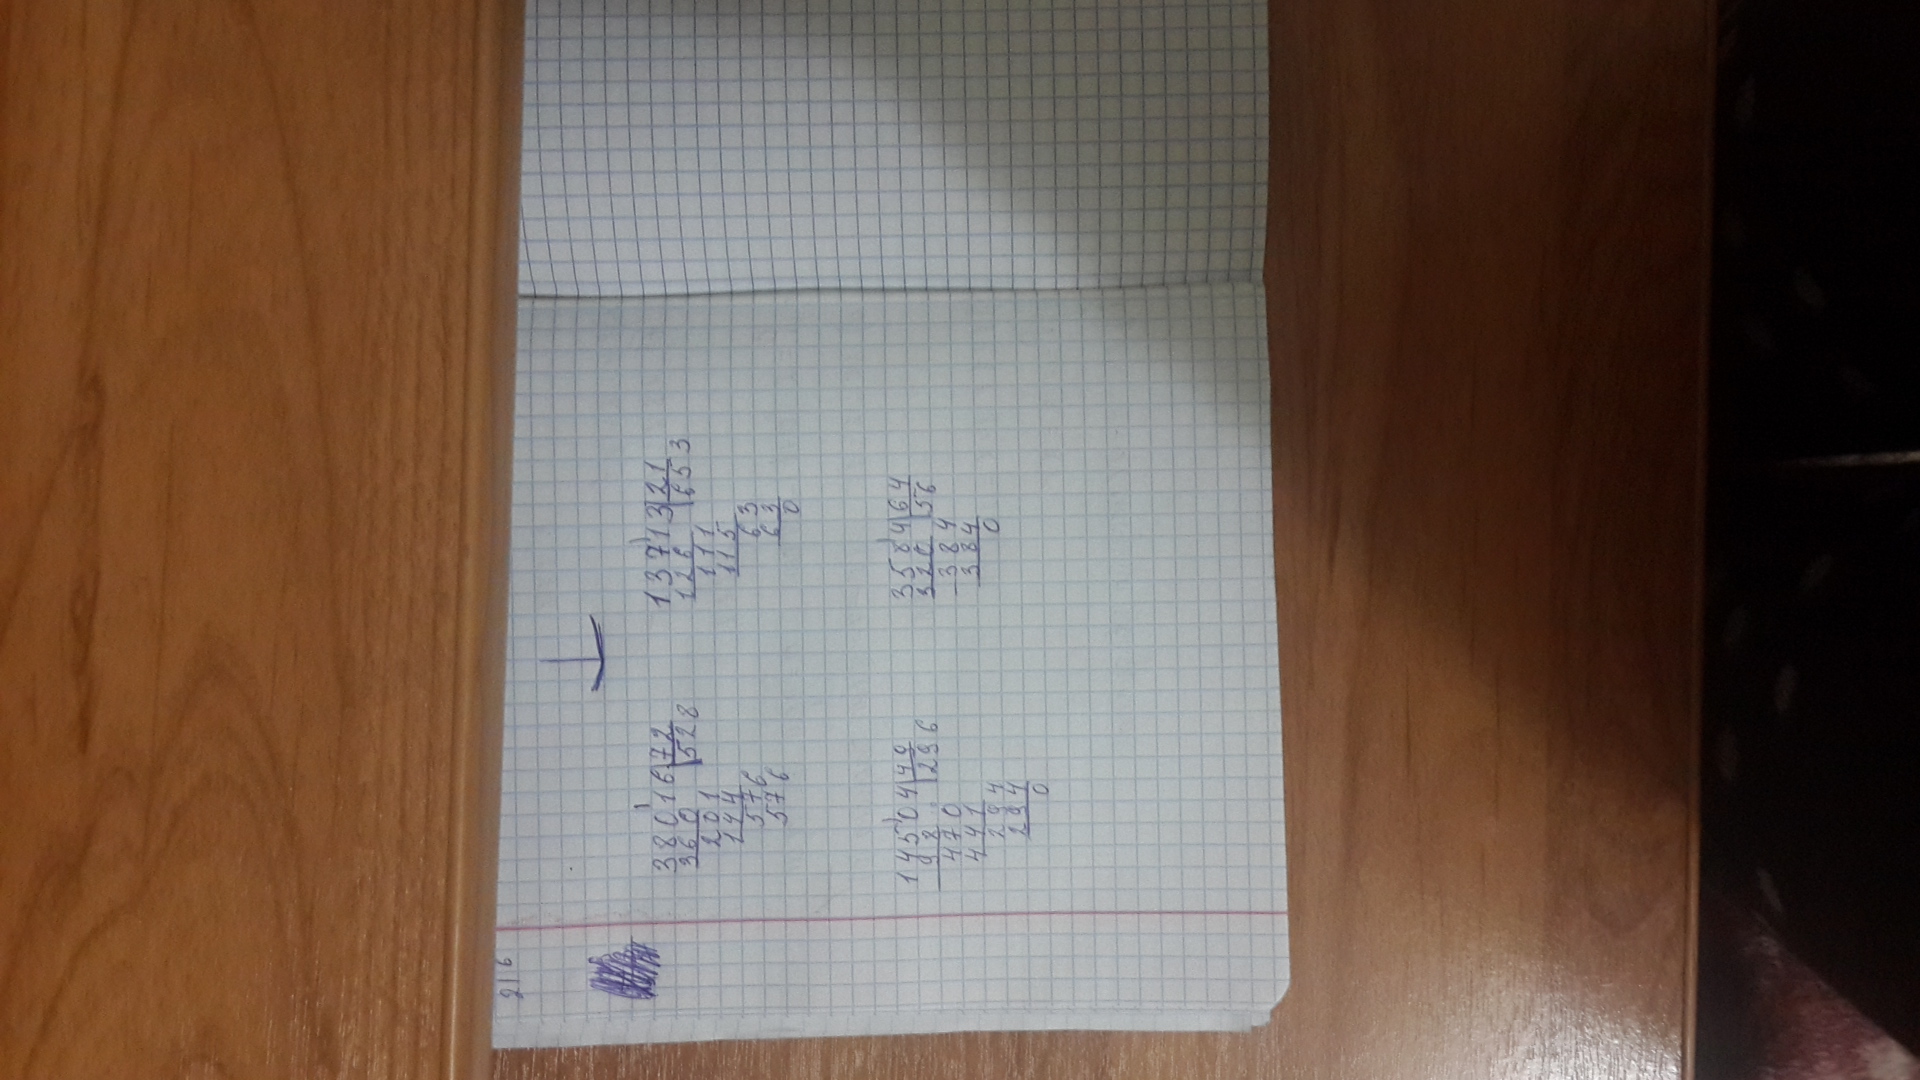 216
38016 72
360 528
201
144
576
576
13713 21
126 653
111
115
63
63
0
14504 49
98 296
470
441
294
294
0
3584 64
320 56
384
384
0